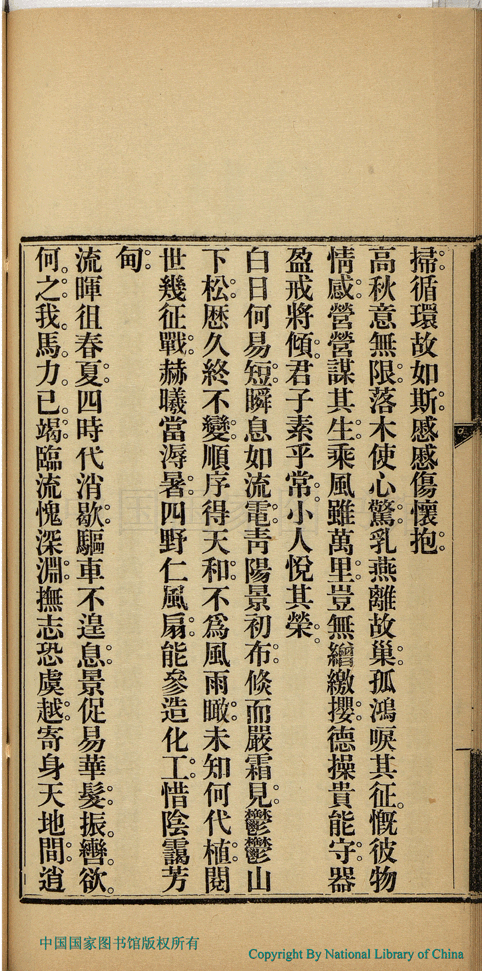 掃循環故如斯慼慼傷懷抱
高秋意無限落木使心驚乳燕離故巢孤鴻唳其征慨彼物
情感營營謀其生乘風雖萬里豈無繒繳攖德操貴能守器
盈戒將傾君子素乎常小人悅其榮
白日何易短瞬息如流電靑陽景初布倐而嚴霜見鬱鬱山
下松歷久終不變順序得天和不爲風雨瞰未知何代植閱
世幾征戰赫曦當溽暑四野仁風扇能參造化工惜陰靄芳
甸
流暉徂春夏四時代消歇驅車不遑息景促易華髮振轡欲
何之我馬力已竭臨流愧深淵撫志恐虞越寄身天地間逍
中国国家图书馆版权所有
Copyright By National Library of China